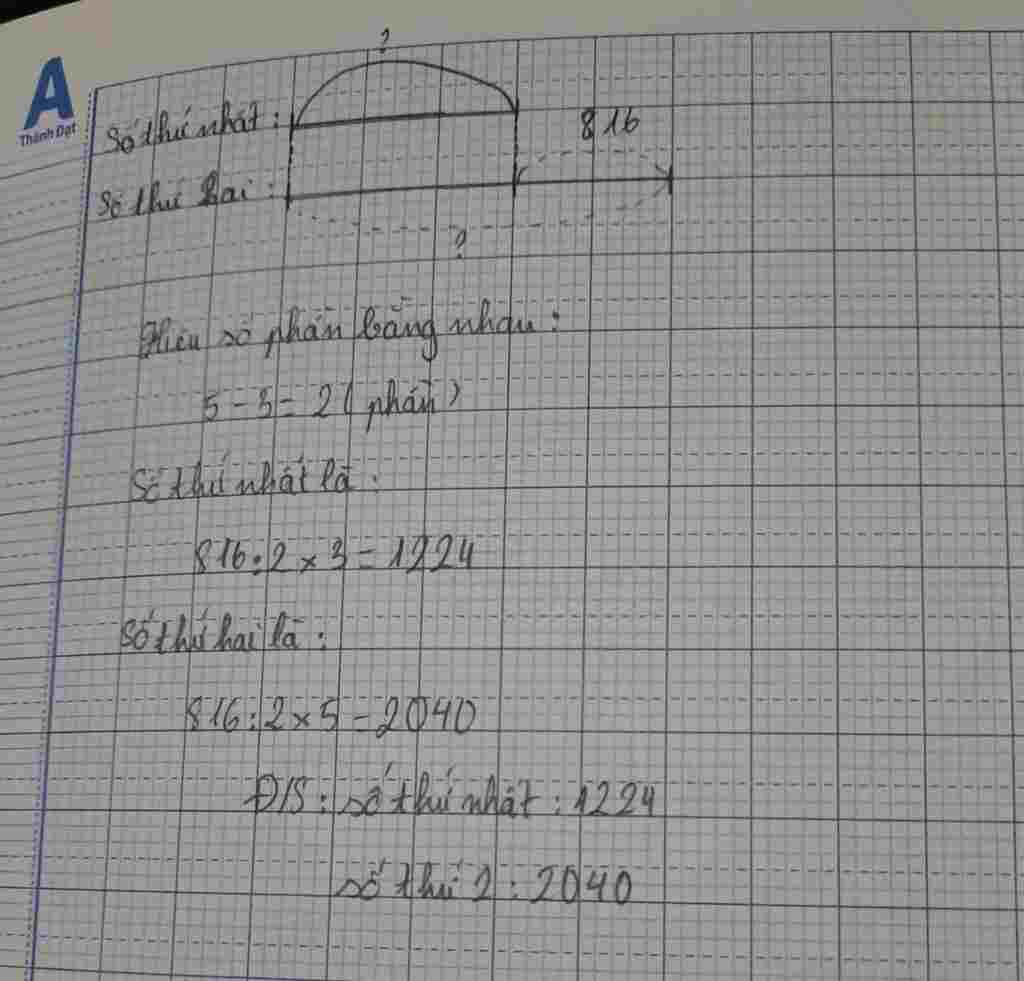 A
Thành Đạt
?
Số thứ nhất :
816
Số thứ hai :
?
Hiệu số phần bằng nhau :
5 - 3 = 2 ( phần )
Số thứ nhất là :
816 : 2 x 3 = 1224
Số thứ hai là :
816 : 2 x 5 = 2040
Đ/S : số thứ nhất : 1224
số thứ 2 : 2040